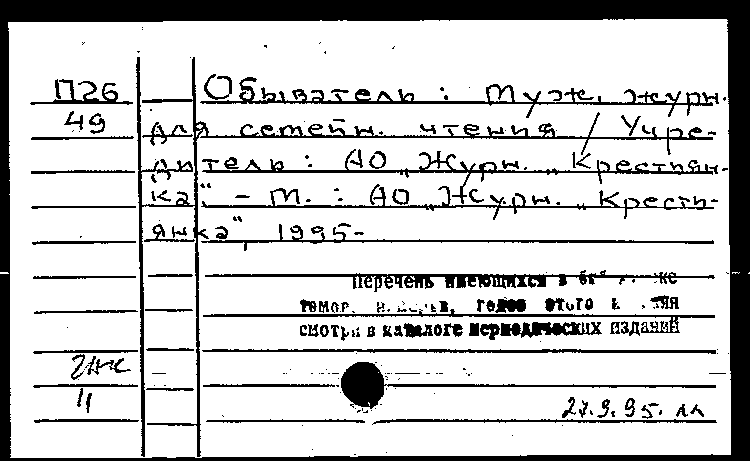 П26 Обыватель : Муж. журн.
49 для семейн. чтения / Учре-
дитель : АО „Журн. „Крестьян-
ка“. - М. : АО „Журн. „Кресть-
янка“, 1995-
Перечень имеющихся в
томов, годов этого
смотри в каталоге периодических изданий
27.9.95.